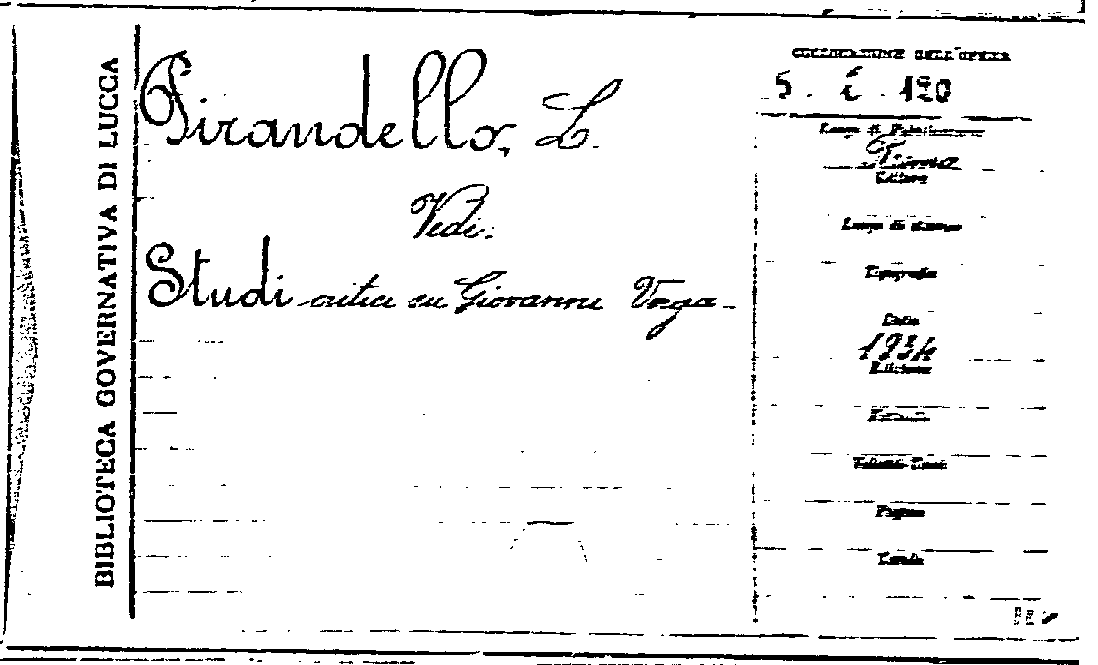 BIBLIOTECA GOVERNATIVA DI LUCCA
Pirandello, L.
Vedi:
Studi critici su Giovanni Verga
COLLOCAZIONE DELL'OPERA
5. i. 120
Luogo di Pubblicazione
Editore
Luogo di stampa
Tipografia
Data
1934
Edizione
Formato
Volumi-Tomi
Pagine
Tavole